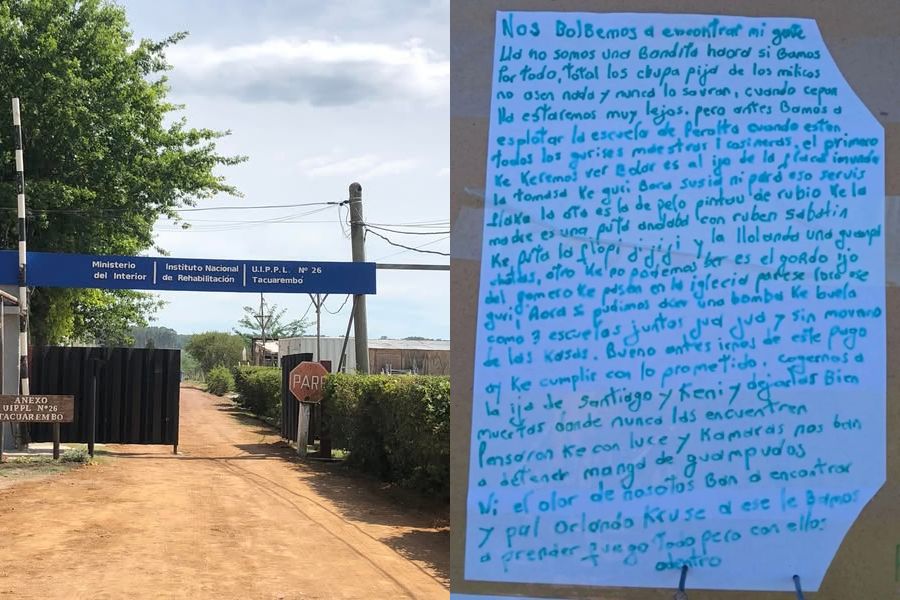 Ministerio
del Interior
Instituto Nacional
de Rehabilitación
U.I.P.P.L. Nº 26
Tacuarembo
PARE
ANEXO
UIPPL Nº26
TACUAREMBO
Nos BolBemos a encontrar mi gente
Ya no somos una Bandita haora si Bamos
Por todo, total los chupa pija de los milicos
no asen nada y nunca lo savran, cuando cepan
Ya estaremos muy lejos. pero antes Bamos a
esplotar la escuela de Peralta cuando esten
todos los gurises maestras i cosineras, el primero
Ke Keremos ver Bolar es al ijo de la flaca inmunda
la tomasa Ke guri Bora susio ni para eso servis
flaka la otra es la de pelo pintau de rubio Ke la
madre es una puta andaba con ruben sabalin
Ke puta la flopi jijiji y la llolanda una guampu
chatas, otro Ke no podemos ver es el gordo ijo
del gomero Ke pasan en la iglecia parese loro ese
guri, Aora si pudimos aser una bomba Ke buela
como 3 escuelas juntas jua jua y sin movernos
de las Kasas. Bueno antes irnos de este pago
ay Ke cumplir con lo prometido, cogernos a
la ija de Santiago y Keni y dejarlas Bien
muertas donde nunca las encuentren
Pensaron Ke con luce y Kamaras nos ban
a detener manga de guampudos
Ni el olor de nosotos Ban a encontrar
Y pal Orlando Kruse a ese le Bamos
a prender fuego todo pero con ellos
adentro